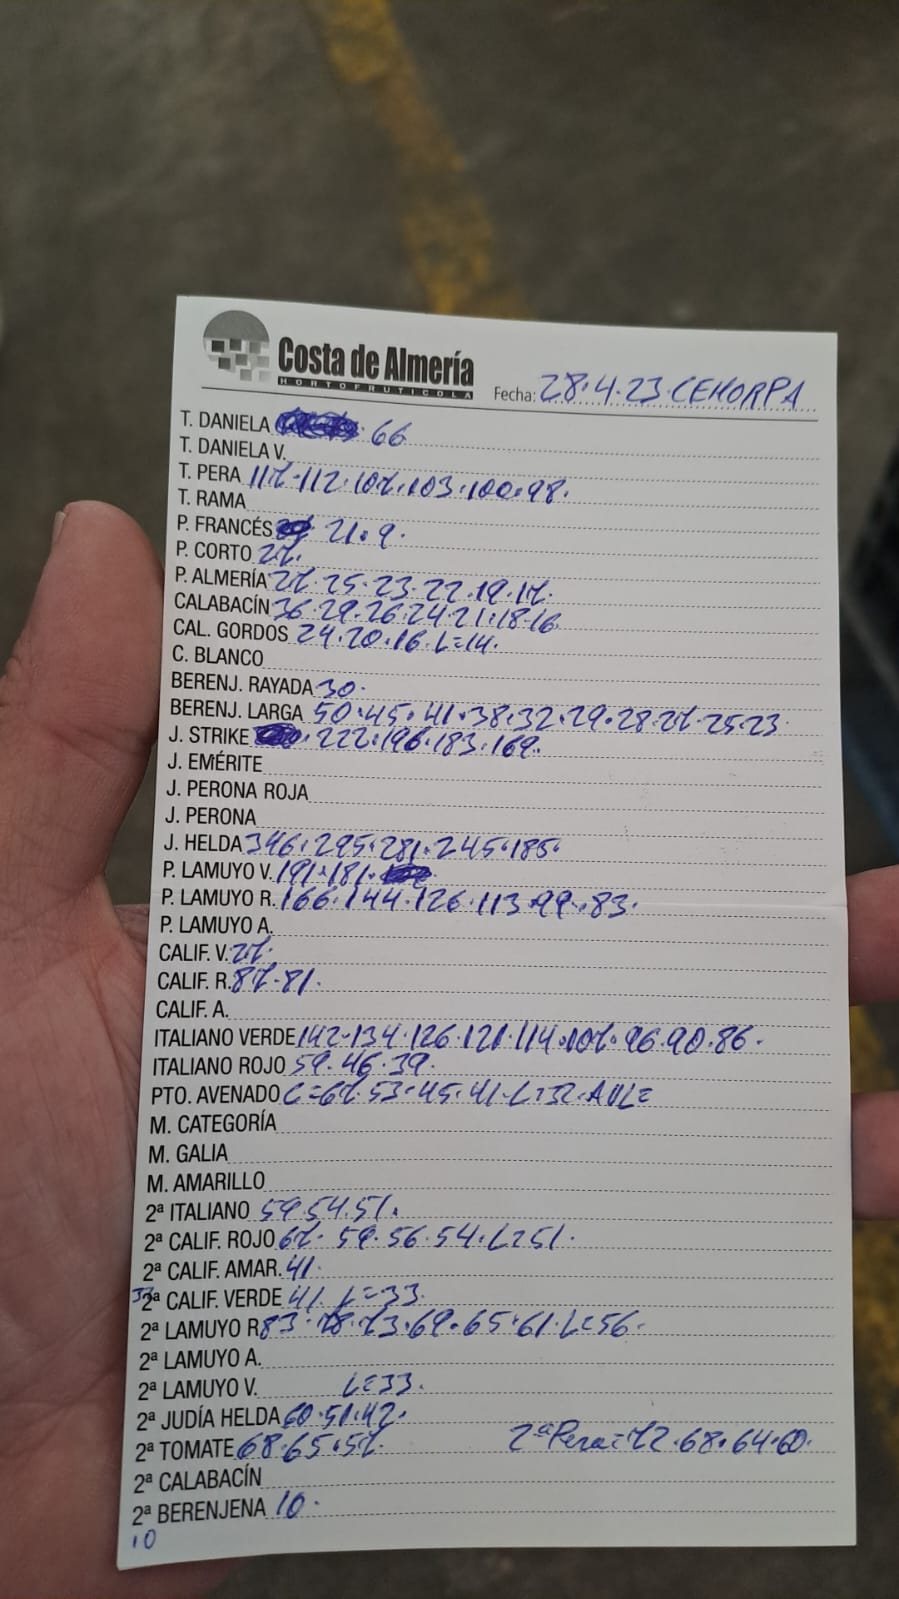 Costa de Almería
HORTOFRUTICOLA
Fecha: 28.4.23.CEHORPA
T. DANIELA 66
T. DANIELA V.
T. PERA 117.112.107.103.100.98.
T. RAMA
P. FRANCÉS 21.9.
P. CORTO 27.
P. ALMERÍA 27.25.23.22.19.17.
CALABACÍN 36.29.26.24.21.18.16
CAL. GORDOS 24.20.16.L=14.
C. BLANCO
BERENJ. RAYADA 30.
BERENJ. LARGA 50.45.41.38.32.29.28.27.25.23.
J. STRIKE .222.196.183.169.
J. EMÉRITE
J. PERONA ROJA
J. PERONA
J. HELDA 346.295.281.245.185.
P. LAMUYO V. 191.181.
P. LAMUYO R. 166.144.126.113.99.83.
P. LAMUYO A.
CALIF. V. 27.
CALIF. R. 87.81.
CALIF. A.
ITALIANO VERDE 142.134.126.121.114.107.96.90.86.
ITALIANO ROJO 59.46.39.
PTO. AVENADO L=67.53.45.41.L=32.
M. CATEGORÍA
M. GALIA
M. AMARILLO
2ª ITALIANO 59.54.51.
2ª CALIF. ROJO 67.59.56.54.L=51.
2ª CALIF. AMAR. 41.
33
2ª CALIF. VERDE 41. L=33.
2ª LAMUYO R 83.78.73.69.65.61.L=56.
2ª LAMUYO A.
2ª LAMUYO V. L=33.
2ª JUDÍA HELDA 60.51.42.
2ª TOMATE 68.65.57. 2ª Pera=72.68.64.60.
2ª CALABACÍN
2ª BERENJENA 10.
10